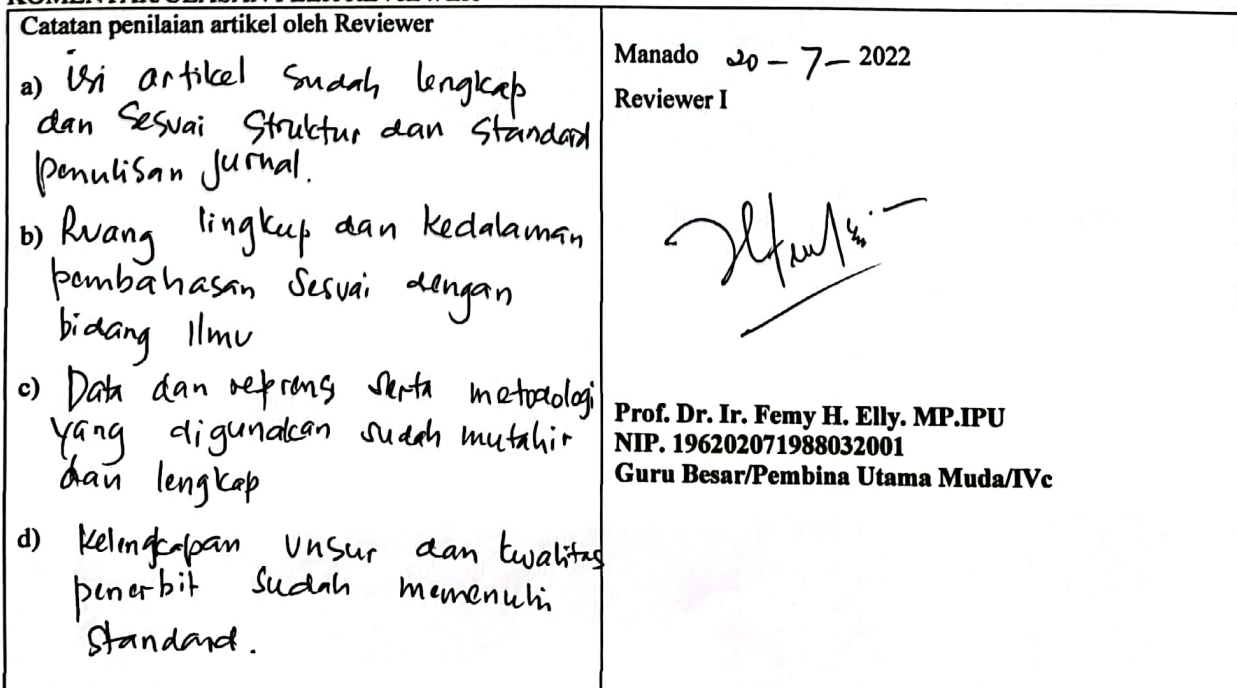 Catatan penilaian artikel oleh Reviewer
a) isi artikel sudah lengkap
dan sesuai struktur dan standard
penulisan jurnal.
b) Ruang lingkup dan kedalaman
pembahasan sesuai dengan
bidang Ilmu
c) Data dan reprens serta metodologi
yang digunakan sudah mutahir
dan lengkap
d) Kelengkapan unsur dan kwalitas
penerbit sudah memenuhi
standard.
Manado 20 - 7 - 2022
Reviewer I
Prof. Dr. Ir. Femy H. Elly. MP.IPU
NIP. 196202071988032001
Guru Besar/Pembina Utama Muda/IVc